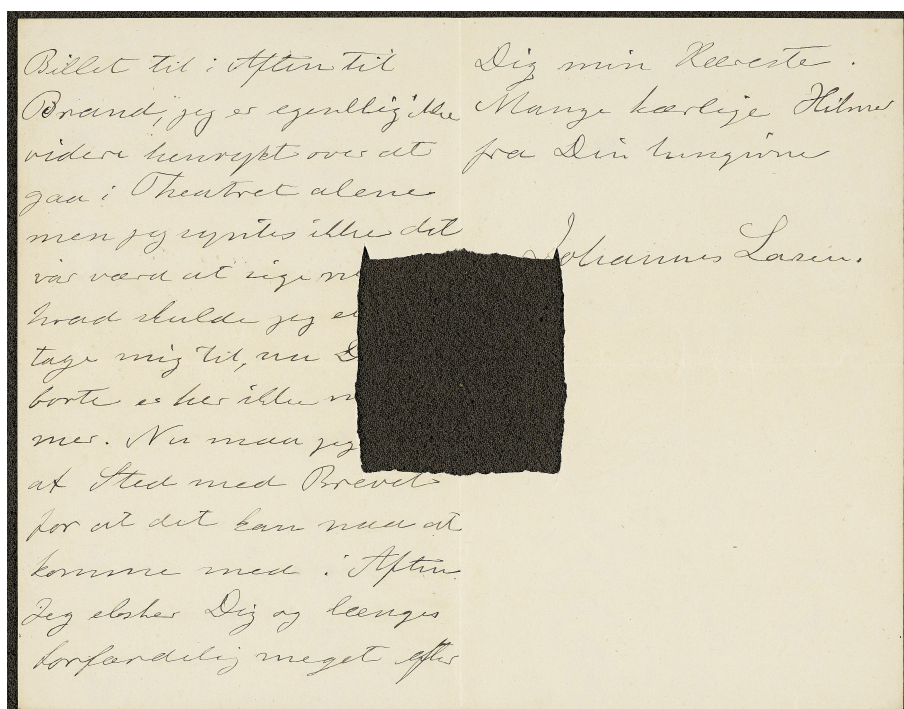 Billet til i Aften til
Brand, jeg er egentlig ikke
videre henrykt over at
gaa i Theatret alene
men jeg syntes ikke det
var værd at sige
hvad skulde jeg
tage mig til, nu
borte er her ikke
mer. Nu maa jeg
af Sted med Brevet
for at det kan naa at
komme med i Aften.
Jeg elsker Dig og længes
forfærdelig meget efter
Dig min Kæreste.
Mange kærlige Hilsner
fra Din hengivne
Johannes Larsen.